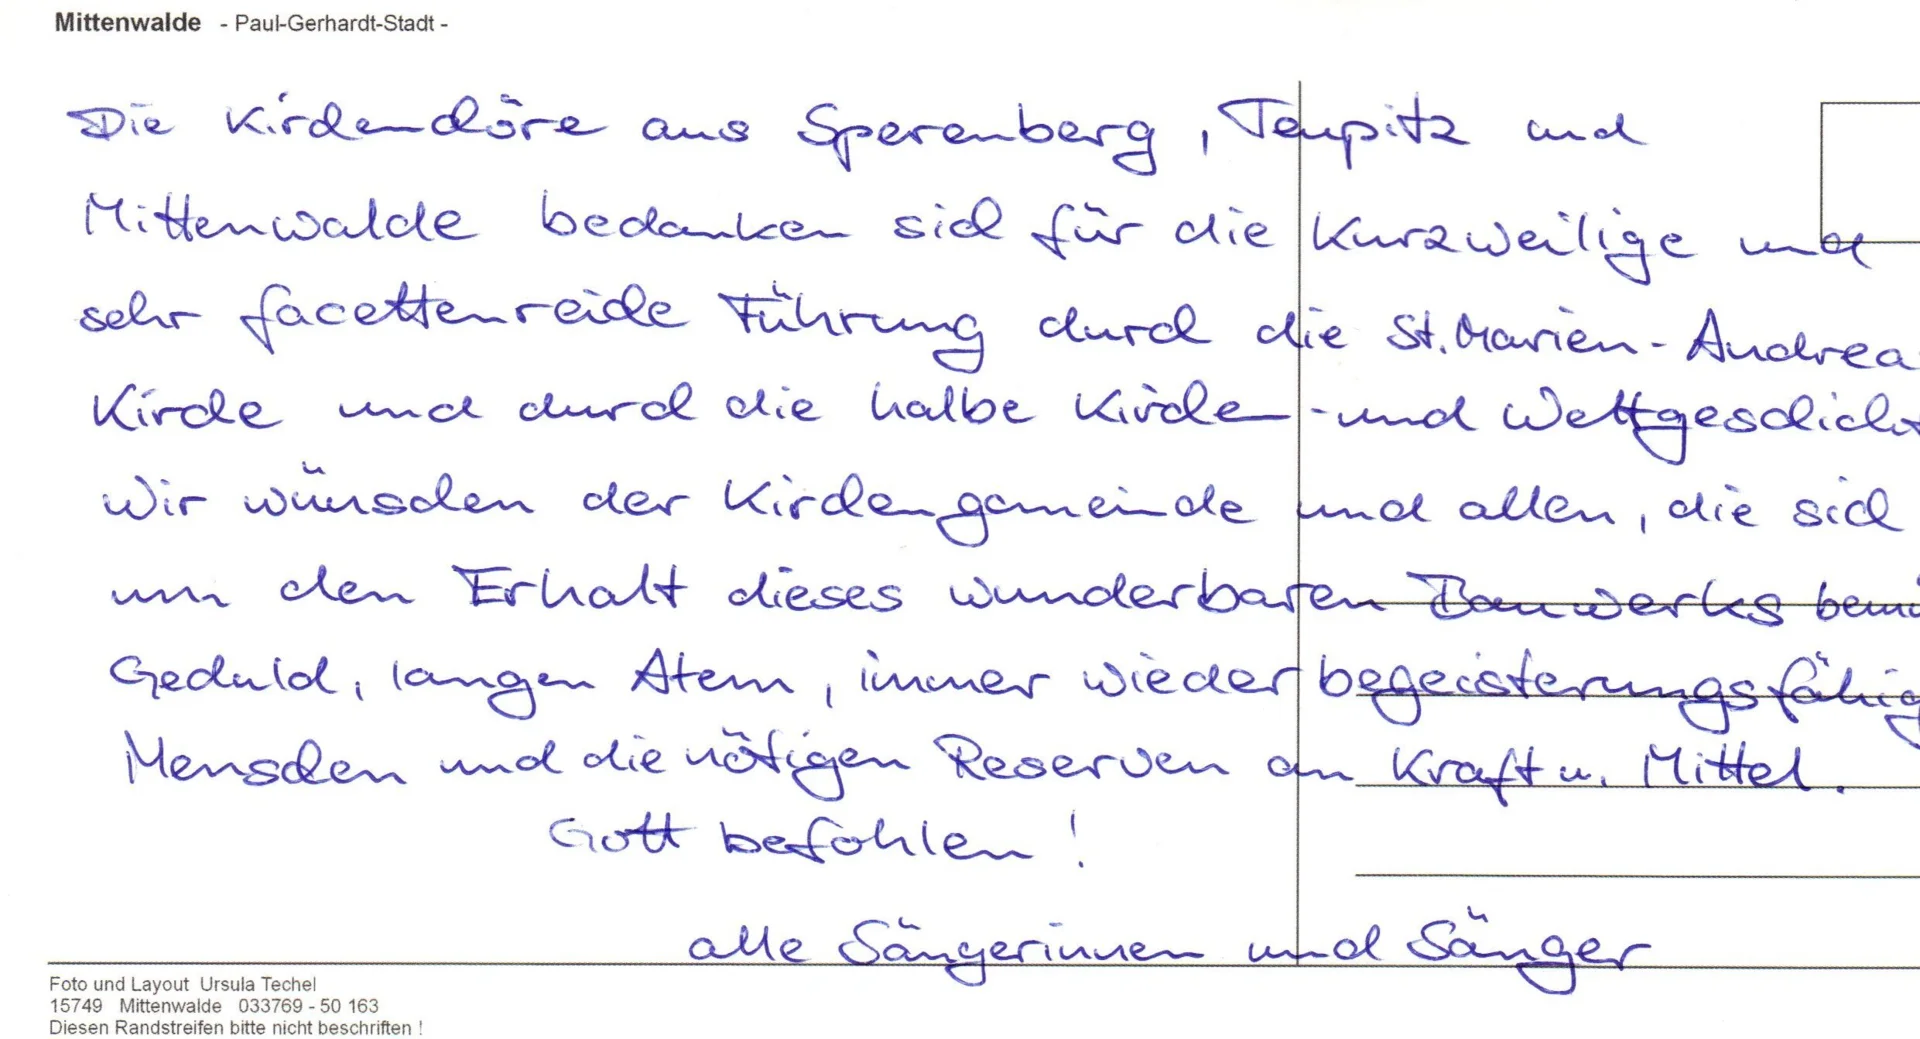 Mittenwalde - Paul-Gerhardt-Stadt -
Die Kirchenchöre aus Sperenberg, Teupitz und
Mittenwalde bedanken sich für die Kurzweilige und
sehr facettenreiche Führung durch die St. Marien-Andrea
Kirche und durch die halbe Kirchen- und Weltgeschicht
Wir wünschen der Kirchengemeinde und allen, die sich
um den Erhalt dieses wunderbaren Bauwerks bemü
Geduld, langen Atem, immer wieder begeisterungsfähig
Menschen und die nötigen Reserven an Kraft u. Mittel.
Gott befohlen!
alle Sängerinnen und Sänger
Foto und Layout Ursula Techel
15749 Mittenwalde 033769 - 50 163
Diesen Randstreifen bitte nicht beschriften !